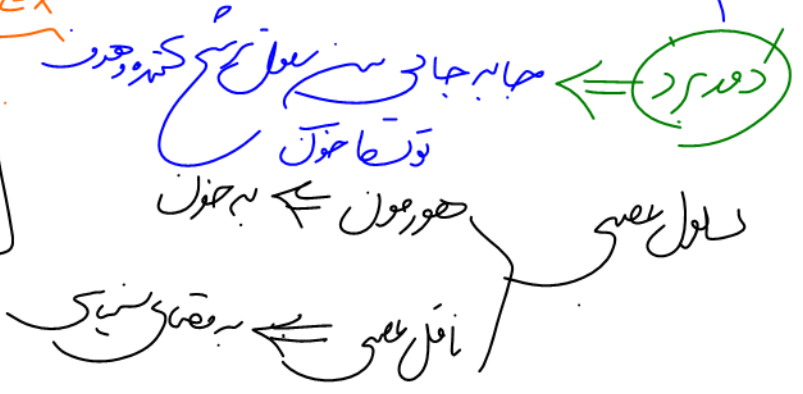 دوربرد ⇐ جابه‌جایی بین سلول ترشح کننده و هدف
توسط خون
سلول عصبی
هورمون ⇐ به خون
ناقل عصبی ⇐ به فضای سیناپسی